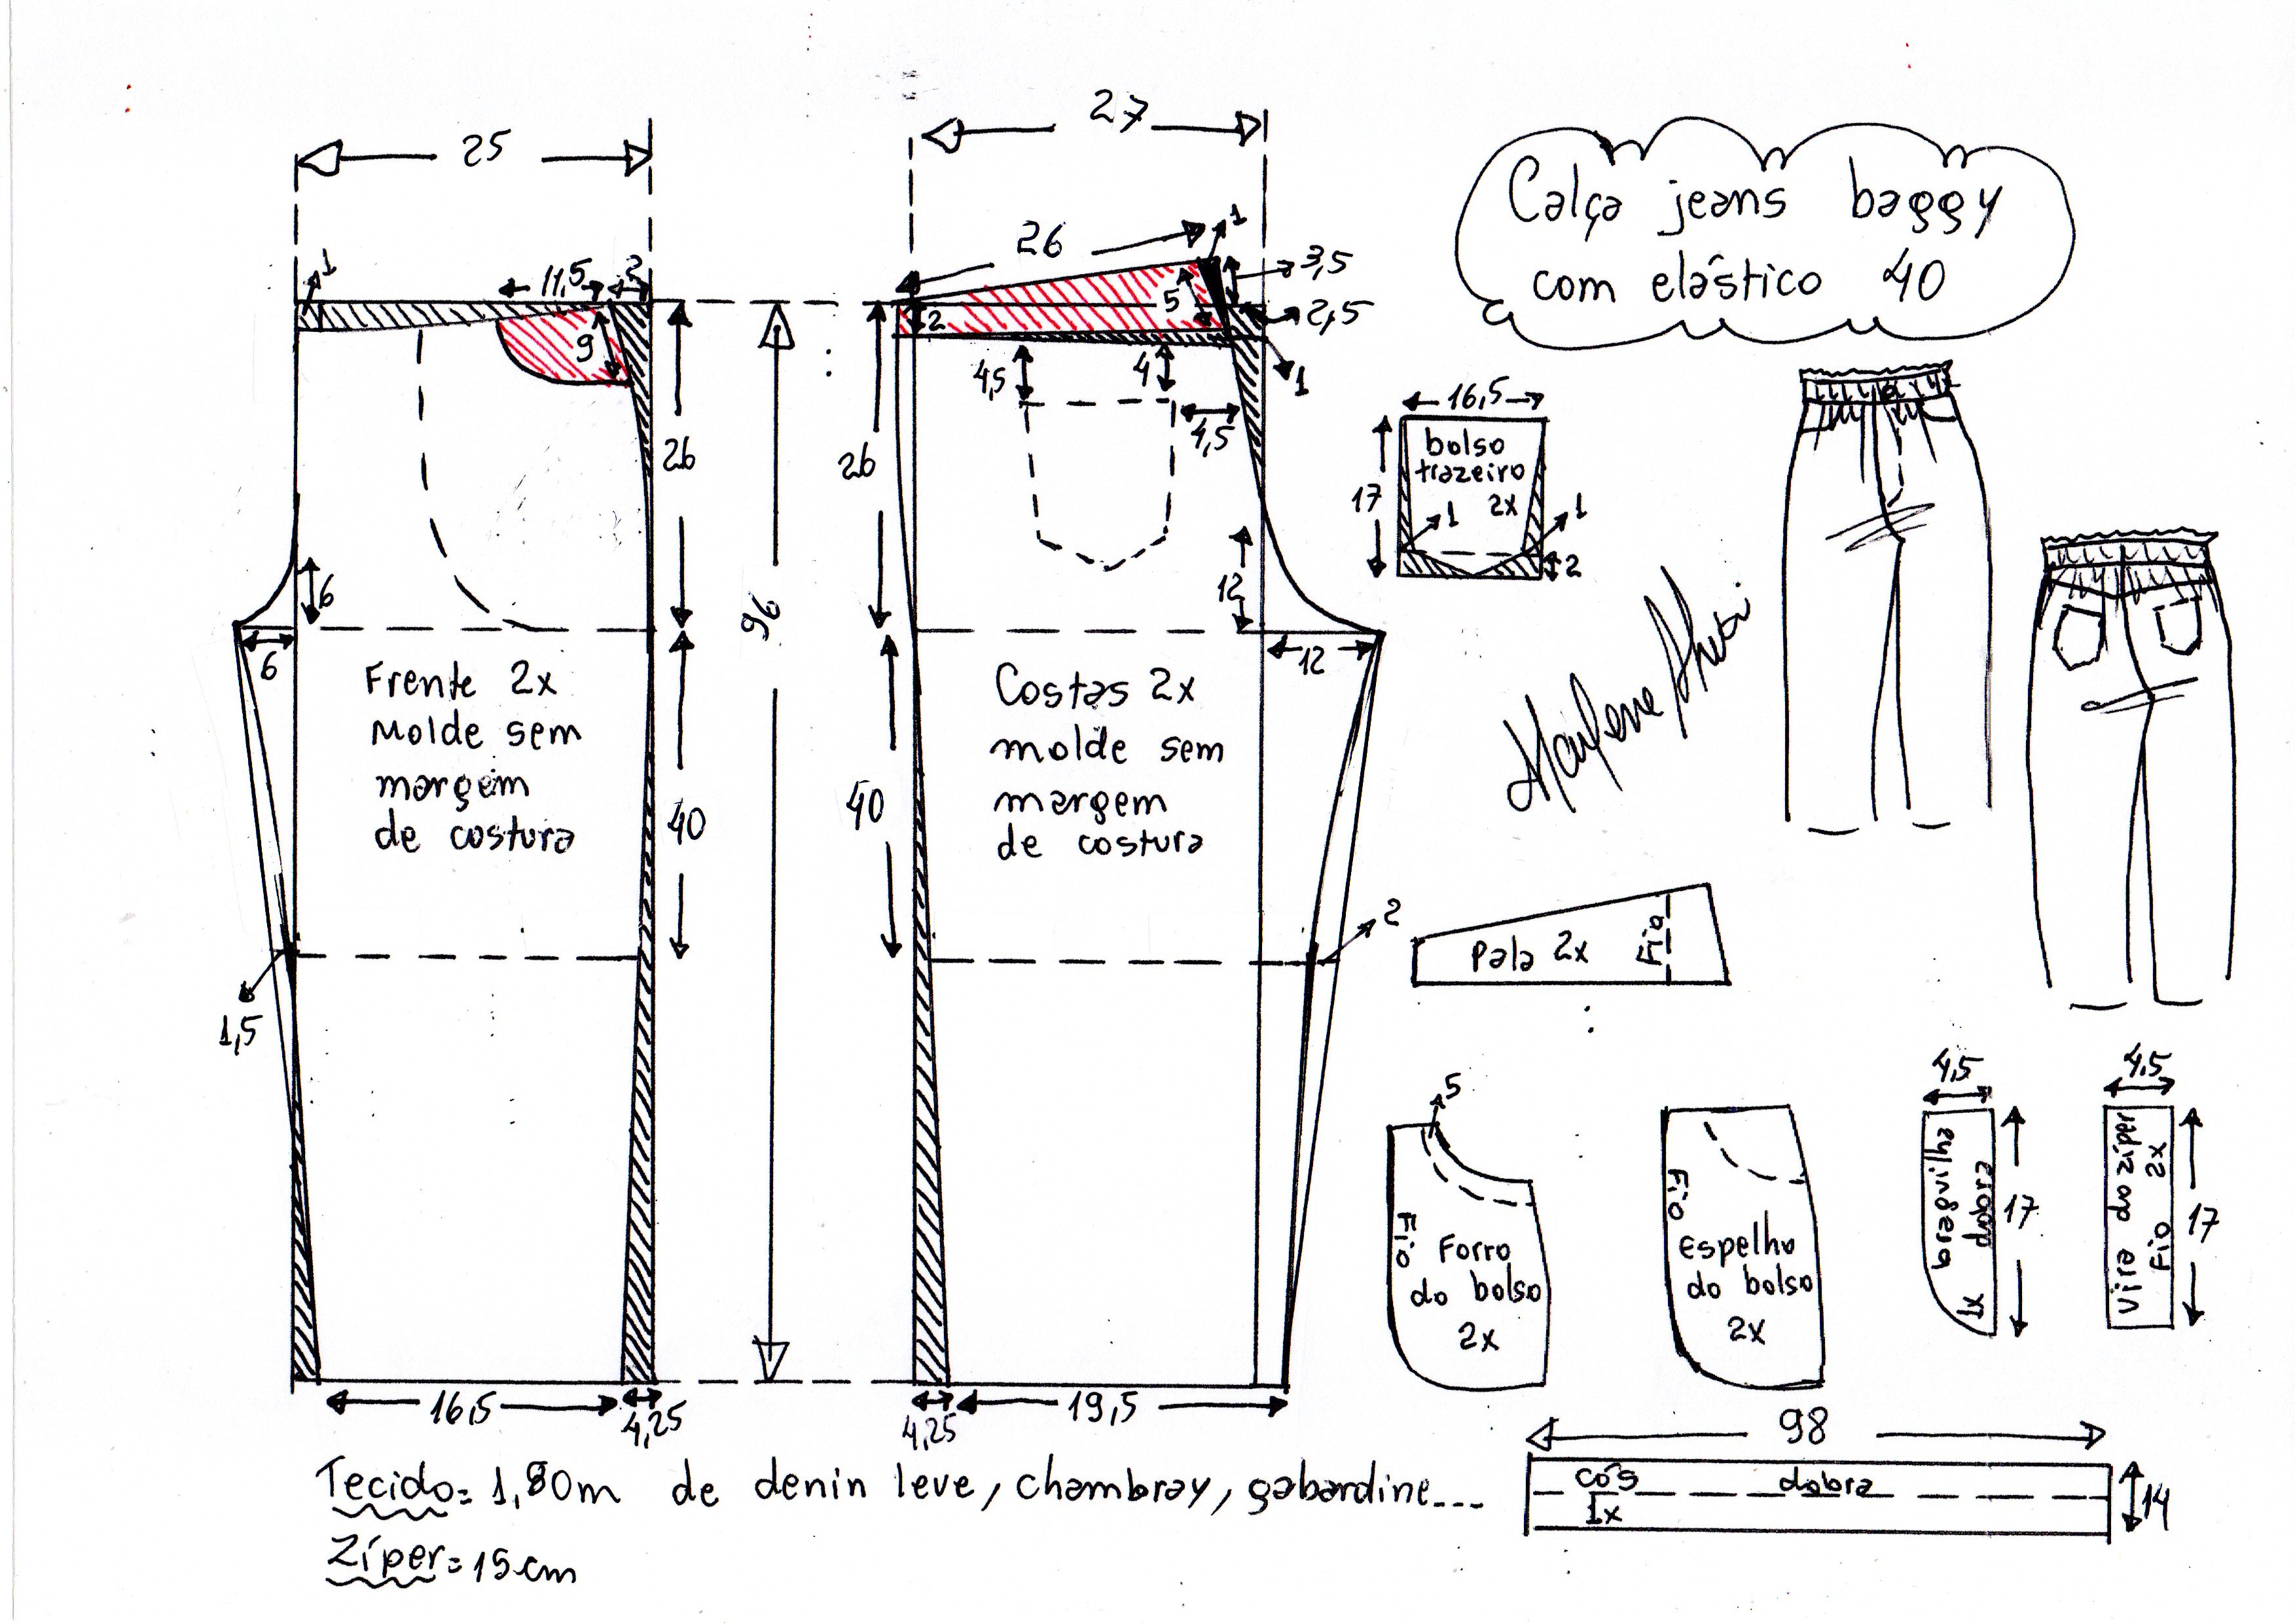 25
27
Calça jeans baggy
com elástico 40
1
11,5
3
9
26
6
6
96
Frente 2x
Molde sem
margem
de costura
40
1,5
16,5
4,25
26
1
3,5
5
2,5
2
1
4,5
4
4,5
26
12
12
Costas 2x
molde sem
margem
de costura
40
2
4,25
19,5
16,5
bolso
trazeiro
2x
17
1
1
2
Pala 2x
Fio
5
Fio
Forro
do bolso
2x
Fio
Espelho
do bolso
2x
4,5
braguilha
1x dobra
17
4,5
Vira do zíper
Fio 2x
17
98
cós dobra
1x
14
Tecido= 1,80m de denin leve, chambray, gabardine...
Zíper= 15cm